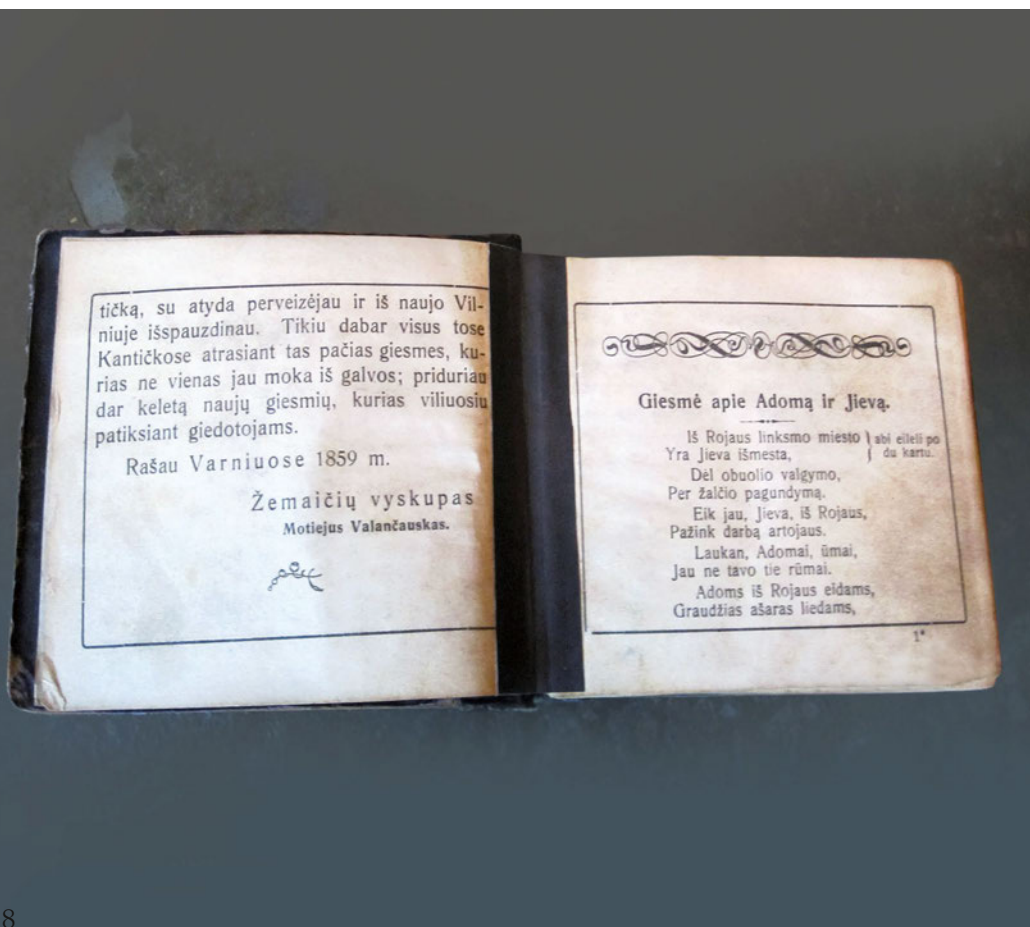 tičką, su atyda perveizėjau ir iš naujo Vil-
niuje išspauzdinau. Tikiu dabar visus tose
Kantičkose atrasiant tas pačias giesmes, ku-
rias ne vienas jau moka iš galvos; priduriau
dar keletą naujų giesmių, kurias viliuosiu
patiksiant giedotojams.
Rašau Varniuose 1859 m.
Žemaičių vyskupas
Motiejus Valančauskas.
Giesmė apie Adomą ir Jievą.
Iš Rojaus linksmo miesto } abi eileli po
Yra Jieva išmesta, } du kartu.
Dėl obuolio valgymo,
Per žalčio pagundymą.
Eik jau, Jieva, iš Rojaus,
Pažink darbą artojaus.
Laukan, Adomai, ūmai,
Jau ne tavo tie rūmai.
Adoms iš Rojaus eidams,
Graudžias ašaras liedams,
1*
8